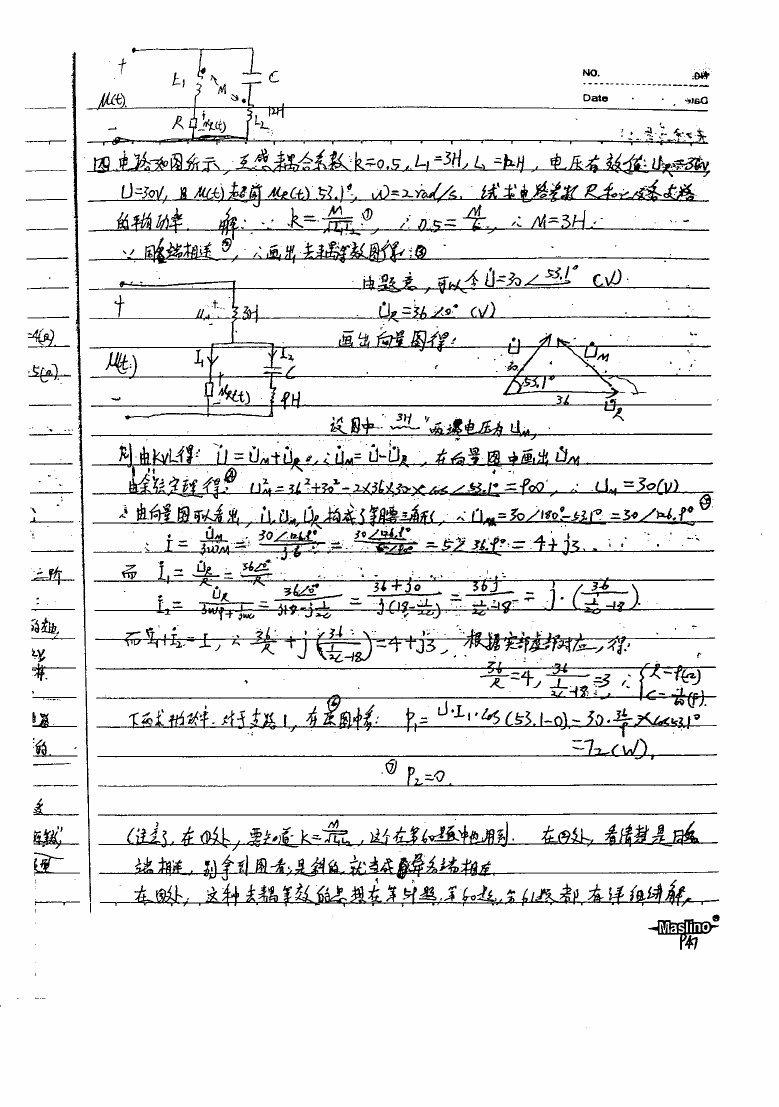 NO.
Date
L₁ M C
u(t)
R u_R(t) L₂ 12H
四 电路如图所示，互感耦合系数 k=0.5, L₁=3H, L₂=12H，电压有效值：U_R=36V,
U=30V, 且 u(t) 超前 u_R(t) 53.1°, ω=2rad/s. 试求电路参数 R和C及各支路
的平均功率. 解：∵ k=M/√L₁L₂ ①, ∴ 0.5=M/6, ∴ M=3H.
∵ 同名端相连②, ∴画出去耦等效图得：③
由题意，可以令 U̇=30∠53.1° (V)
U̇_R=36∠0° (V)
画出向量图得：
+ u_M 3H
u(t) I₁ I₂ C
- u_R(t) 9H
U̇ U̇_M 30 53.1° 36 U̇_R
设图中 "3H" 两端电压为 U_M,
则由KVL得：U̇=U̇_M+U̇_R, ∴U̇_M=U̇-U̇_R, 在向量图中画出 U̇_M
由余弦定理得④ U_M²=36²+30²-2×36×30×cos∠53.1°=900, ∴ U_M=30(V)
由向量图可以看出, U̇, U̇_M, U̇_R 构成了等腰三角形, ∴U̇_M=30∠180°-53.1°=30∠126.9° ⑤
∴ İ=U̇_M/jωM=30∠126.9°/j6=30∠126.9°/6∠90°=5∠36.9°=4+j3.
而 İ₁=U̇_R/R=36∠0°/R
İ₂=U̇_R/(jω9+1/jωC)=36∠0°/(j18-j1/2C)=(36+j0)/j(18-1/2C)=36j/(1/2C-18)=j·(36/(1/2C-18)).
而 İ₁+İ₂=İ, ∴ 36/R+j(36/(1/2C-18))=4+j3, 根据实部虚部对应, 得：
36/R=4, 36/(1/2C-18)=3 ∴ {R=9(Ω) C=1/60(F).
下面求平均功率. 对于支路1, 在原图中看⑥: P₁=U·I₁·cos(53.1-0)=30·36/9×cos53.1°
=72(W),
⑦ P₂=0.
(注意), 在①处, 要知道 k=M/√L₁L₂, 这个在第60题中也用到. 在②处, 看清楚是同名
端相连, 别拿到图看是斜的, 就当成异名端相连
在③处, 这种去耦等效的思想在第54题, 第60题, 第61题都有详细讲解,
Maslino
P47
=4(A)
.5(A)
二阶
的